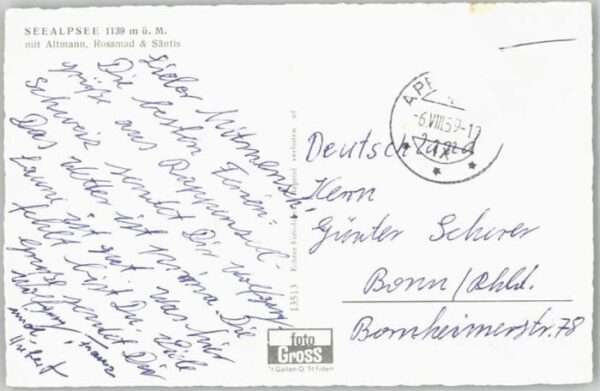 SEEALPSEE 1139 m ü. M.
mit Altmann, Rossmad & Säntis
Lieber Mitmensch
Die besten Ferien-
grüße aus
Schweiz sendet Dir Wolfgang
Das Wetter ist prima. Die
Laune ist gut was hier
fehlt bist Du. Viele
Grüße sendet Dir
Wolfgang
auch
Hubert
13513
verboten
AP
-6.VIII.59-17
Deutschland
Herrn
Günter Scherer
Bonn/Rhld.
Bornheimerstr. 78
foto
GROSS
St Gallen O, St Fiden